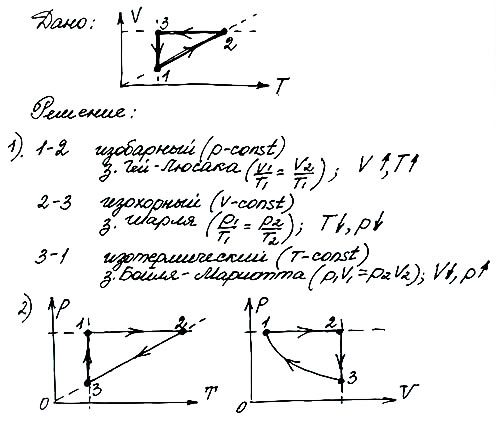 Дано:
V
3
2
1
T
Решение:
1). 1-2 изобарный (p-const)
з. Гей-Люсака (V1/T1 = V2/T1); V↑, T↑
2-3 изохорный (V-const)
з. Шарля (p1/T1 = p2/T2); T↓, p↓
3-1 изотермический (T-const)
з. Бойля-Мариотта (p1V1 = p2V2); V↓, p↑
2)
P
1
2
3
0
T
P
1
2
3
0
V